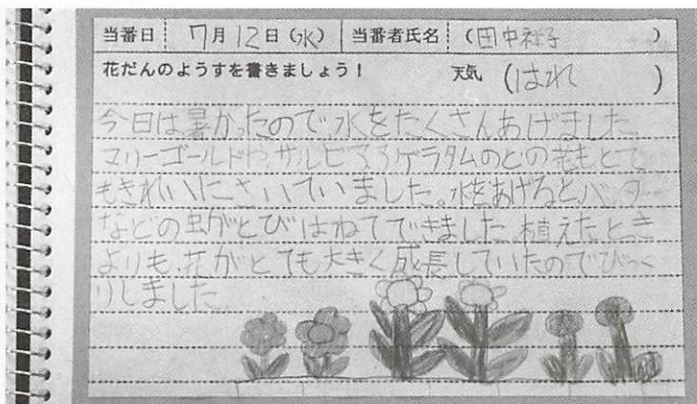 当番日 7月12日(水) 当番者氏名 (田中祥子)
花だんのようすを書きましょう! 天気 (はれ)
今日は暑かったので、水をたくさんあげました。
マリーゴールドや、サルビア、アゲラタムのどの花もとて
もきれいにさいていました。水をあげるとバッタ
などの虫がとびはねてできました。植えたとき
よりも、花がとても大きく成長していたのでびっく
りしました